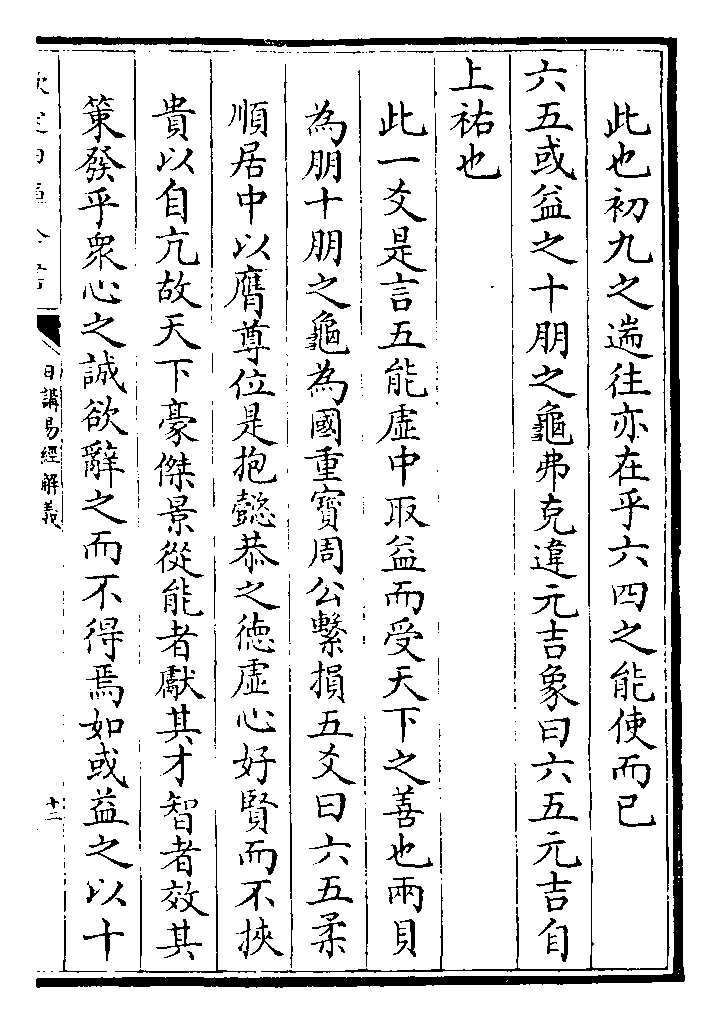 此也初九之遄往亦在乎六四之能使而已
六五或益之十朋之龜弗克違元吉象曰六五元吉自
上祐也
此一爻是言五能虛中取益而受天下之善也兩貝
為朋十朋之龜為國重寳周公繫損五爻曰六五柔
順居中以膺尊位是抱懿恭之徳虛心好賢而不挾
貴以自亢故天下豪傑景從能者獻其才智者效其
策發乎衆心之誠欲辭之而不得焉如或益之以十
日講易經解義
十二